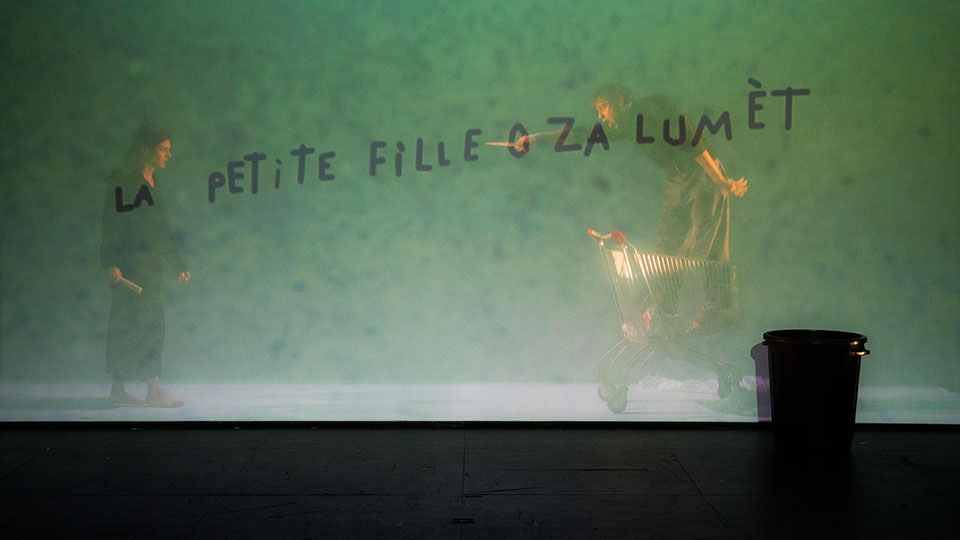 LA PETITE FILLE O ZA LUMÈT